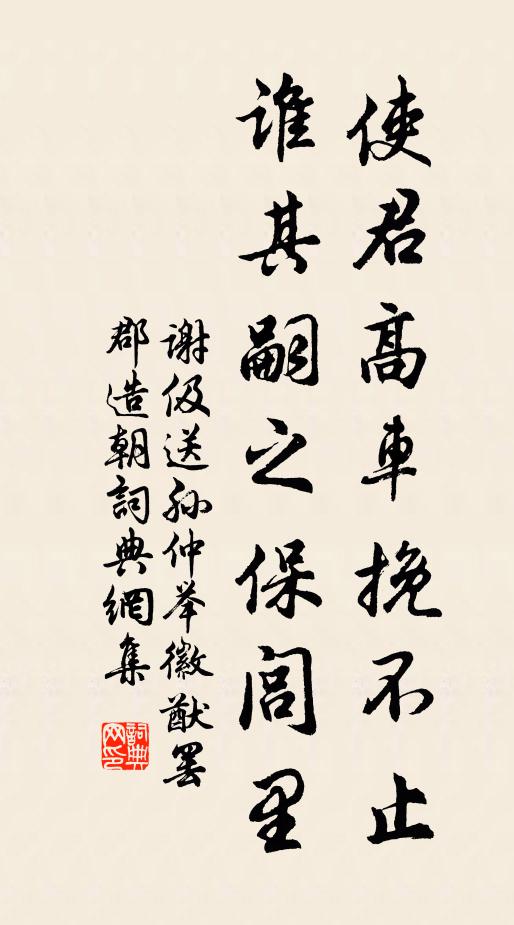 使君高車挽不止
誰其嗣之保閭里
谢伋送孙仲举徽猷罢
郡造朝詞典網集
詞典网印